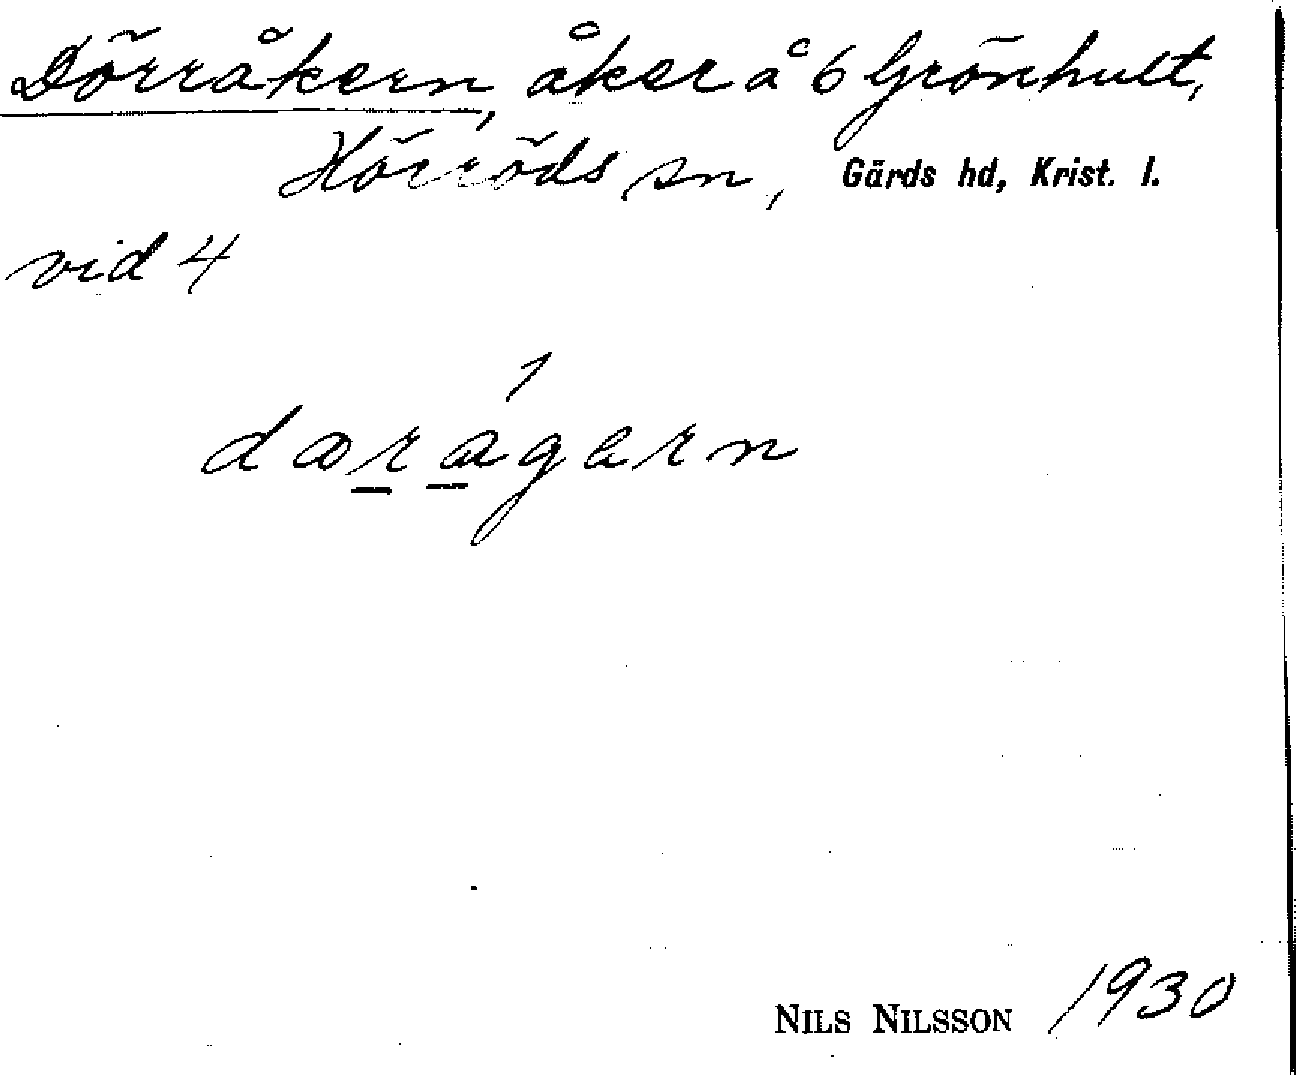 Dörråkern, åker å 6 Grönhult,
Hörröds sn, Gärds hd, Krist. l.
vid 4
1
NILS NILSSON 1930